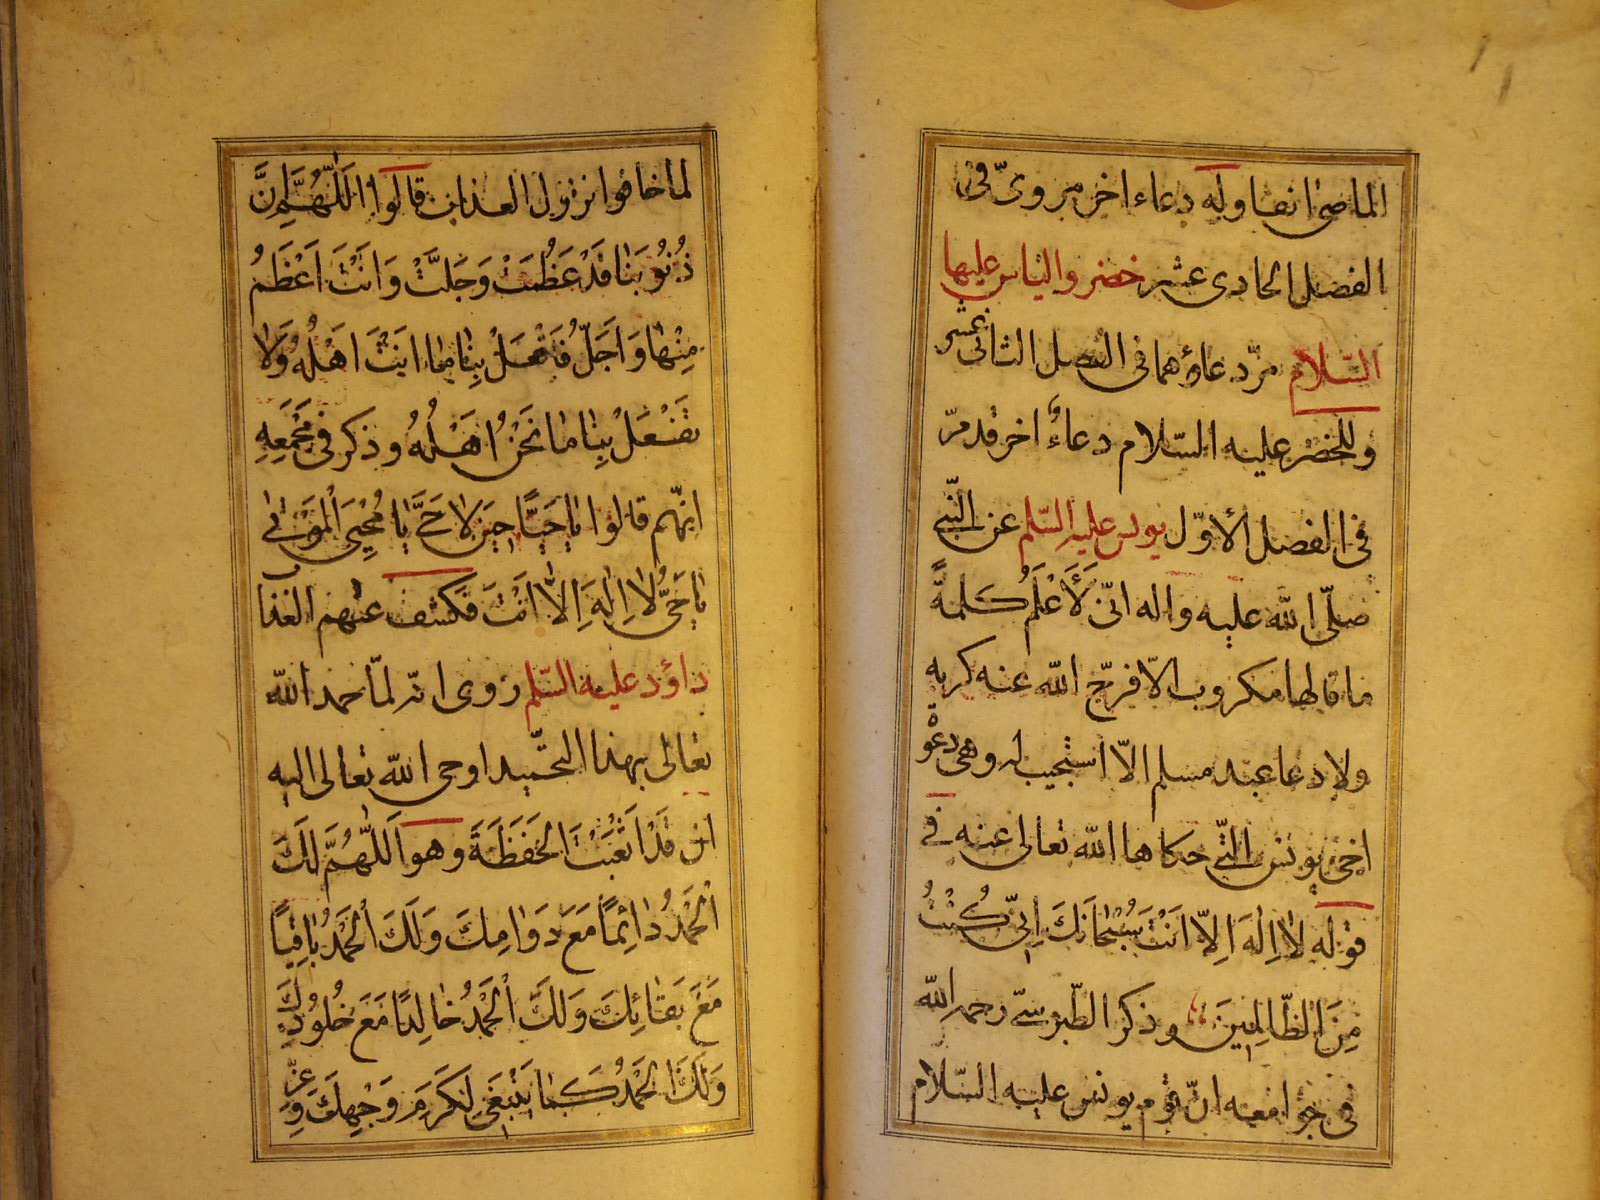 الماضى انفا وله دعاء اخر مروىّ فى
الفصل الحادى عشر خضر والياس عليها
السّلام مرّ دعاؤهما فى الفصل الثانى عشر
وللخضر عليه السّلام دعاءٌ اخر قد مرّ
فى الفصل الأوّل يونس عليه السّلم عن النّبى
صلّى الله عليه واله انّى لَأَعْلَمُ كَلمةً
ما قالها مكروب الّا فرّج الله عنه كربه
ولا دعا عبد مسلم الّا استجيب له وهى دعوة
اخى يونس الّتى حكاها الله تعالى عنه فى
قوله لا اِلٰهَ اِلّا اَنْتَ سُبْحٰانَكَ اِنّى كُنْتُ
مِنَ الظّالِمينَ وذكر الطّبرسىّ رحمه الله
فى جوامعه انّ قوم يونس عليه السّلام
لما خافوا نزول العذاب قالوا اَللّٰهُمَّ اِنَّ
ذُنُوبَنٰا قَدْ عَظُمَتْ وَجَلَّتْ وَاَنْتَ اَعْظَمُ
مِنْهٰا وَاَجَلُّ فَافْعَلْ بِنٰا مٰا اَنْتَ اَهْلُهُ وَلٰا
تَفْعَلْ بِنٰا مٰا نَحْنُ اَهْلُهُ وذكر فى مَجْمَعِهِ
انّهم قالوا يٰا حَيًّا حِينَ لٰا حَىَّ يٰا مُحْيِىَ الْمَوْتٰى
يٰا حَىُّ لٰا اِلٰهَ اِلّٰا اَنْتَ فكشف عنهم العذاب
داؤد عليه السّلم روى انّه لمّا حمد الله
تعالى بهذا التحميد اوحى الله تعالى اليه
ان قَدْ اَتْعَبْتَ الْحَفَظَةَ وهو اَللّٰهُمَّ لَكَ
الْحَمْدُ دٰائِمًا مَعَ دَوٰامِكَ وَلَكَ الْحَمْدُ بٰاقِيًا
مَعَ بَقٰائِكَ وَلَكَ الْحَمْدُ خٰالِدًا مَعَ خُلُودِكَ
وَلَكَ الْحَمْدُ كَمٰا يَنْبَغى لِكَرَمِ وَجْهِكَ وَعِزِّ